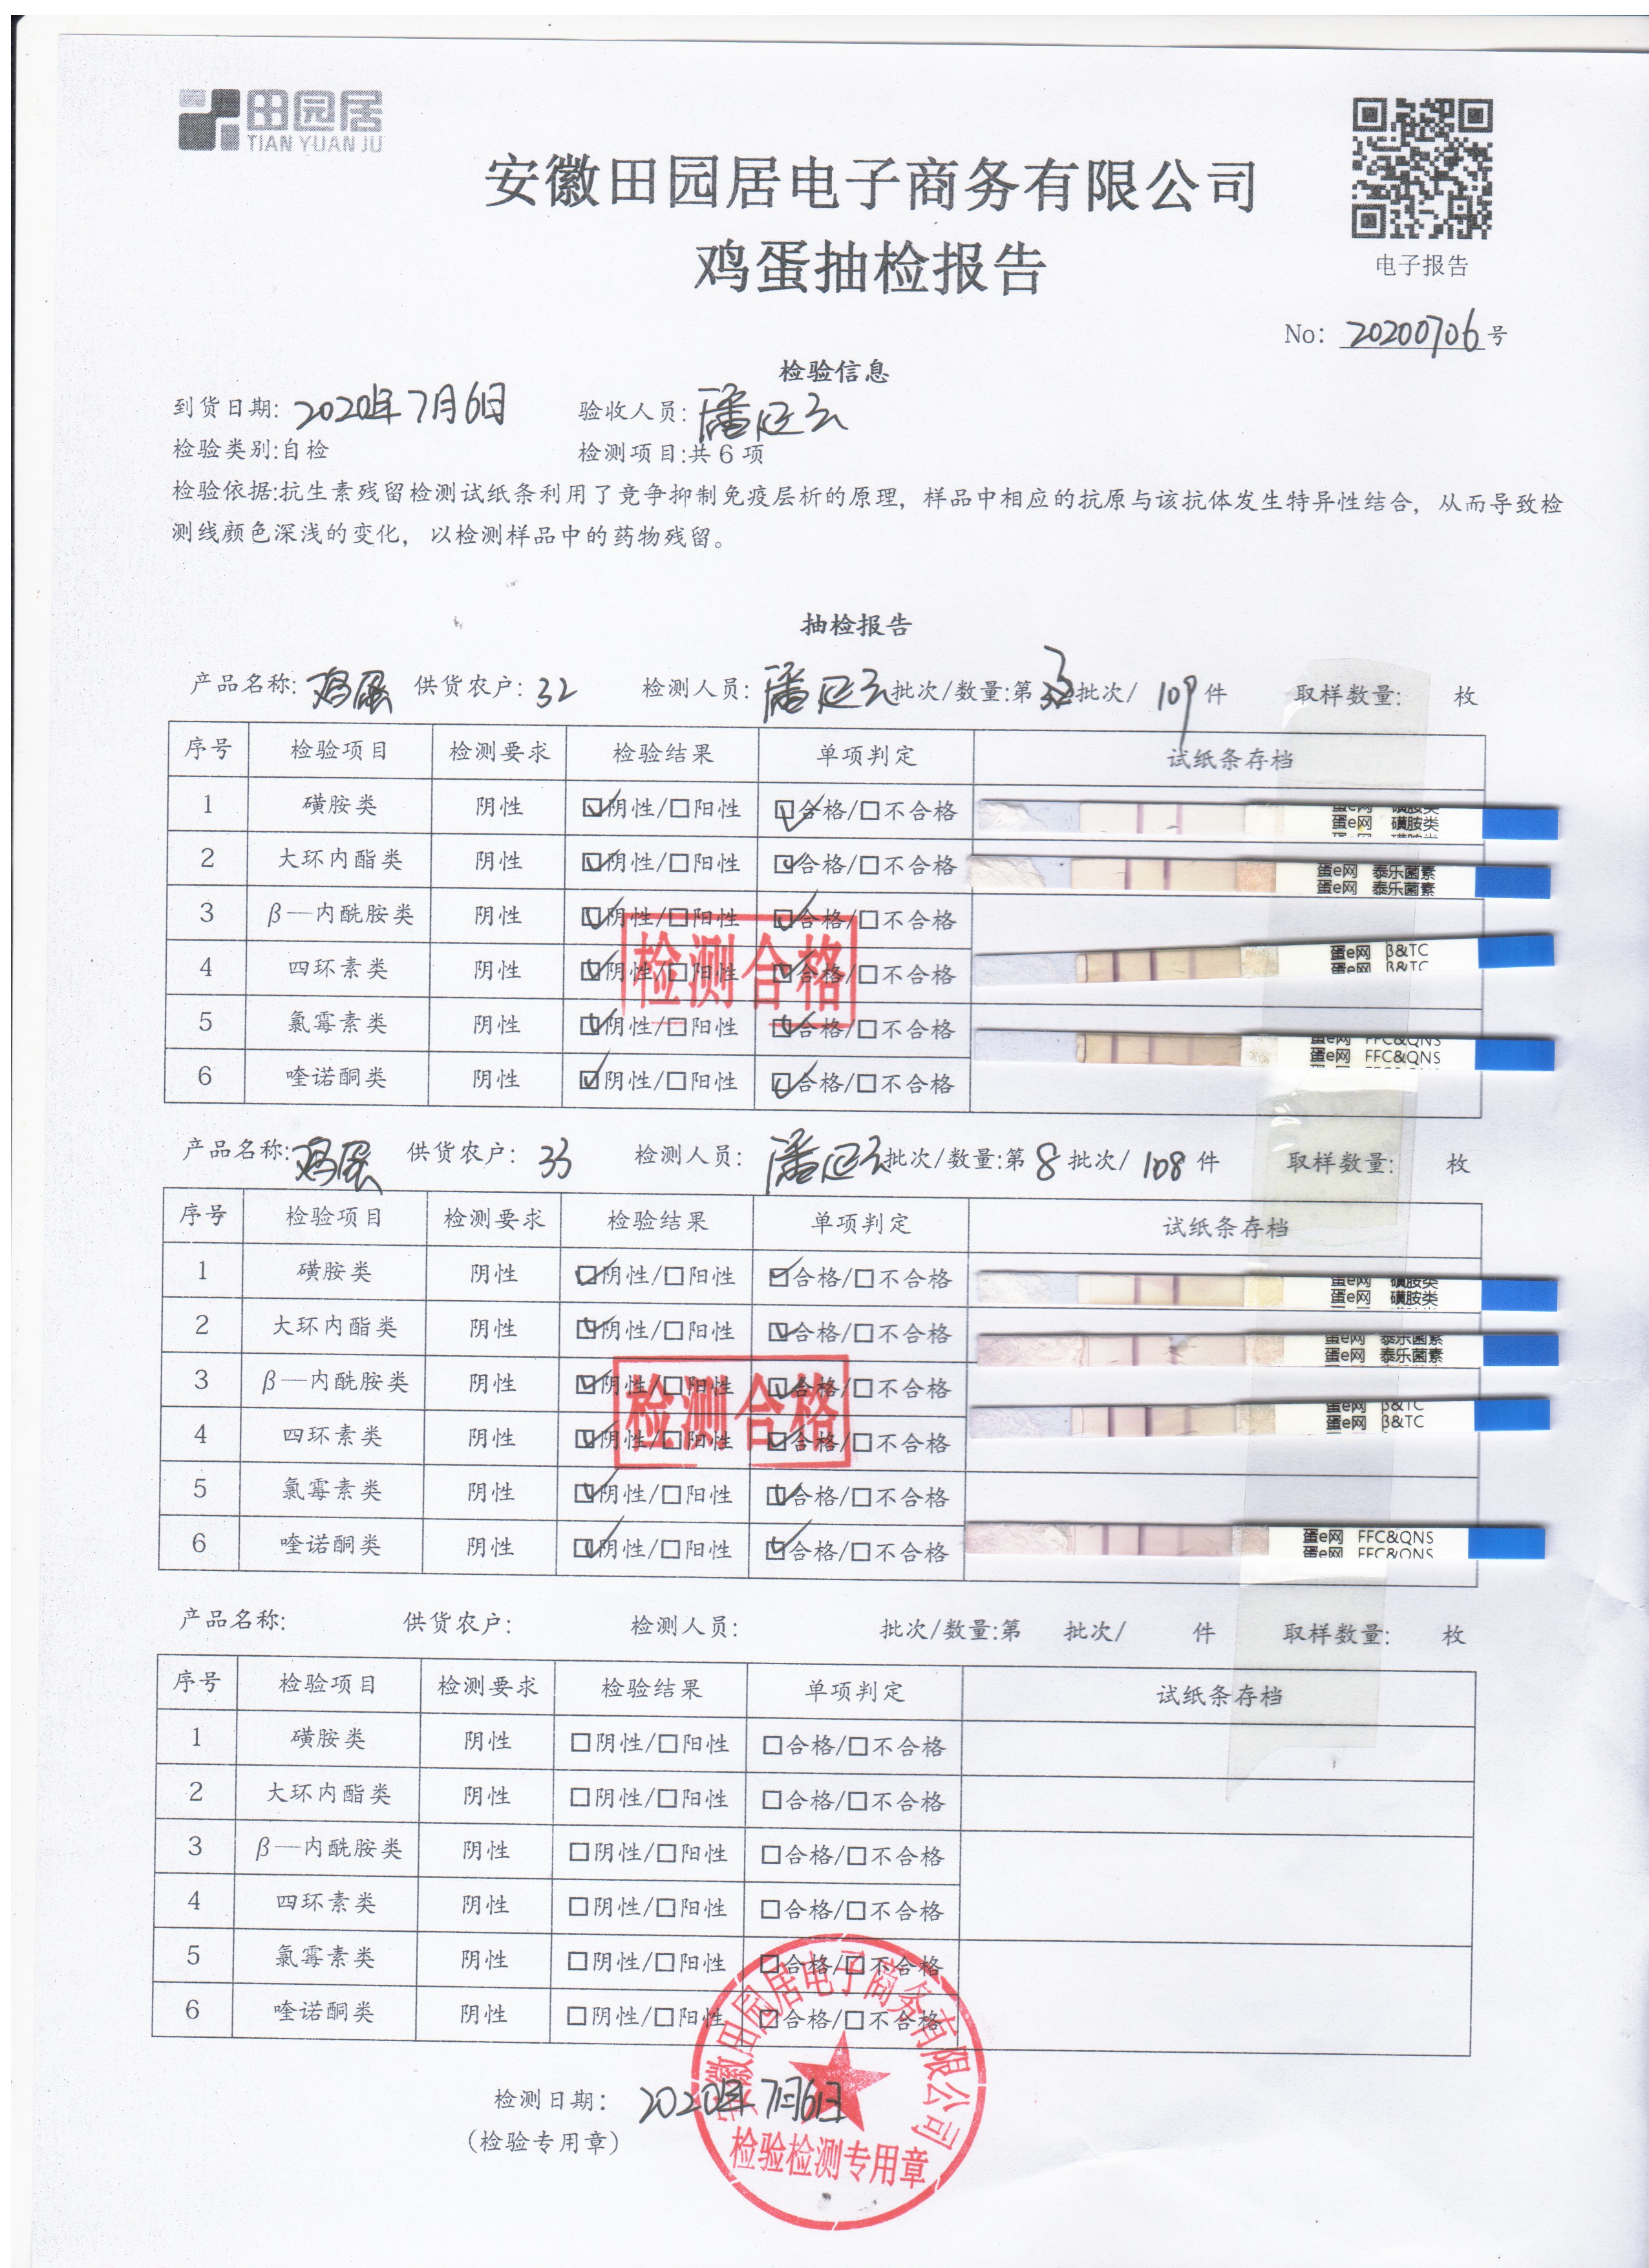 田园居
TIAN YUAN JU
安徽田园居电子商务有限公司
鸡蛋抽检报告
电子报告
No: 20200706号
检验信息
到货日期: 2020年7月6日 验收人员: 潘延云
检验类别:自检 检测项目:共6项
检验依据:抗生素残留检测试纸条利用了竞争抑制免疫层析的原理，样品中相应的抗原与该抗体发生特异性结合，从而导致检
测线颜色深浅的变化，以检测样品中的药物残留。
抽检报告
产品名称: 鸡蛋 供货农户: 32 检测人员: 潘延云 批次/数量:第 批次/ 109 件 取样数量: 枚
序号 检验项目 检测要求 检验结果 单项判定 试纸条存档
1 磺胺类 阴性 ☑阴性/□阳性 ☑合格/□不合格 蛋e网 磺胺类
蛋e网 磺胺类
2 大环内酯类 阴性 ☑阴性/□阳性 ☑合格/□不合格 蛋e网 泰乐菌素
蛋e网 泰乐菌素
3 β—内酰胺类 阴性 ☑阴性/□阳性 ☑合格/□不合格
4 四环素类 阴性 ☑阴性/□阳性 ☑合格/□不合格 蛋e网 β&TC
蛋e网 β&TC
5 氯霉素类 阴性 ☑阴性/□阳性 ☑合格/□不合格 蛋e网 FFC&QNS
蛋e网 FFC&QNS
6 喹诺酮类 阴性 ☑阴性/□阳性 ☑合格/□不合格
检测合格
产品名称: 鸡蛋 供货农户: 33 检测人员: 潘延云 批次/数量:第 8 批次/ 108 件 取样数量: 枚
序号 检验项目 检测要求 检验结果 单项判定 试纸条存档
1 磺胺类 阴性 ☑阴性/□阳性 ☑合格/□不合格 蛋e网 磺胺类
蛋e网 磺胺类
2 大环内酯类 阴性 ☑阴性/□阳性 ☑合格/□不合格 蛋e网 泰乐菌素
蛋e网 泰乐菌素
3 β—内酰胺类 阴性 ☑阴性/□阳性 ☑合格/□不合格 蛋e网 β&TC
4 四环素类 阴性 ☑阴性/□阳性 ☑合格/□不合格 蛋e网 β&TC
5 氯霉素类 阴性 ☑阴性/□阳性 ☑合格/□不合格
6 喹诺酮类 阴性 ☑阴性/□阳性 ☑合格/□不合格 蛋e网 FFC&QNS
蛋e网 FFC&QNS
检测合格
产品名称: 供货农户: 检测人员: 批次/数量:第 批次/ 件 取样数量: 枚
序号 检验项目 检测要求 检验结果 单项判定 试纸条存档
1 磺胺类 阴性 □阴性/□阳性 □合格/□不合格
2 大环内酯类 阴性 □阴性/□阳性 □合格/□不合格
3 β—内酰胺类 阴性 □阴性/□阳性 □合格/□不合格
4 四环素类 阴性 □阴性/□阳性 □合格/□不合格
5 氯霉素类 阴性 □阴性/□阳性 □合格/□不合格
6 喹诺酮类 阴性 □阴性/□阳性 □合格/□不合格
检测日期: 2020年7月6日
(检验专用章)
安徽田园居电子商务有限公司
检验检测专用章